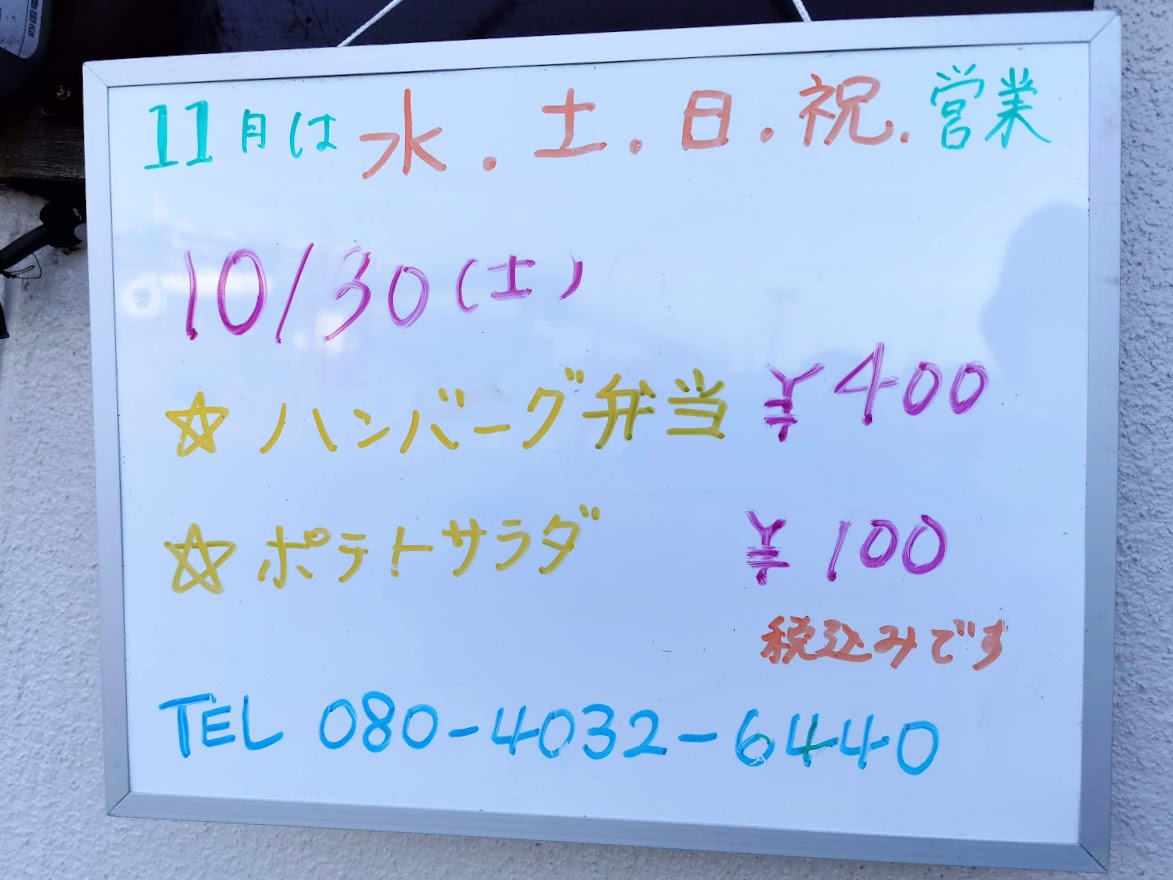 11月は 水.土.日.祝.営業
10/30(土)
☆ハンバーグ弁当 ¥400
☆ポテトサラダ ¥100
税込みです
TEL 080-4032-6440